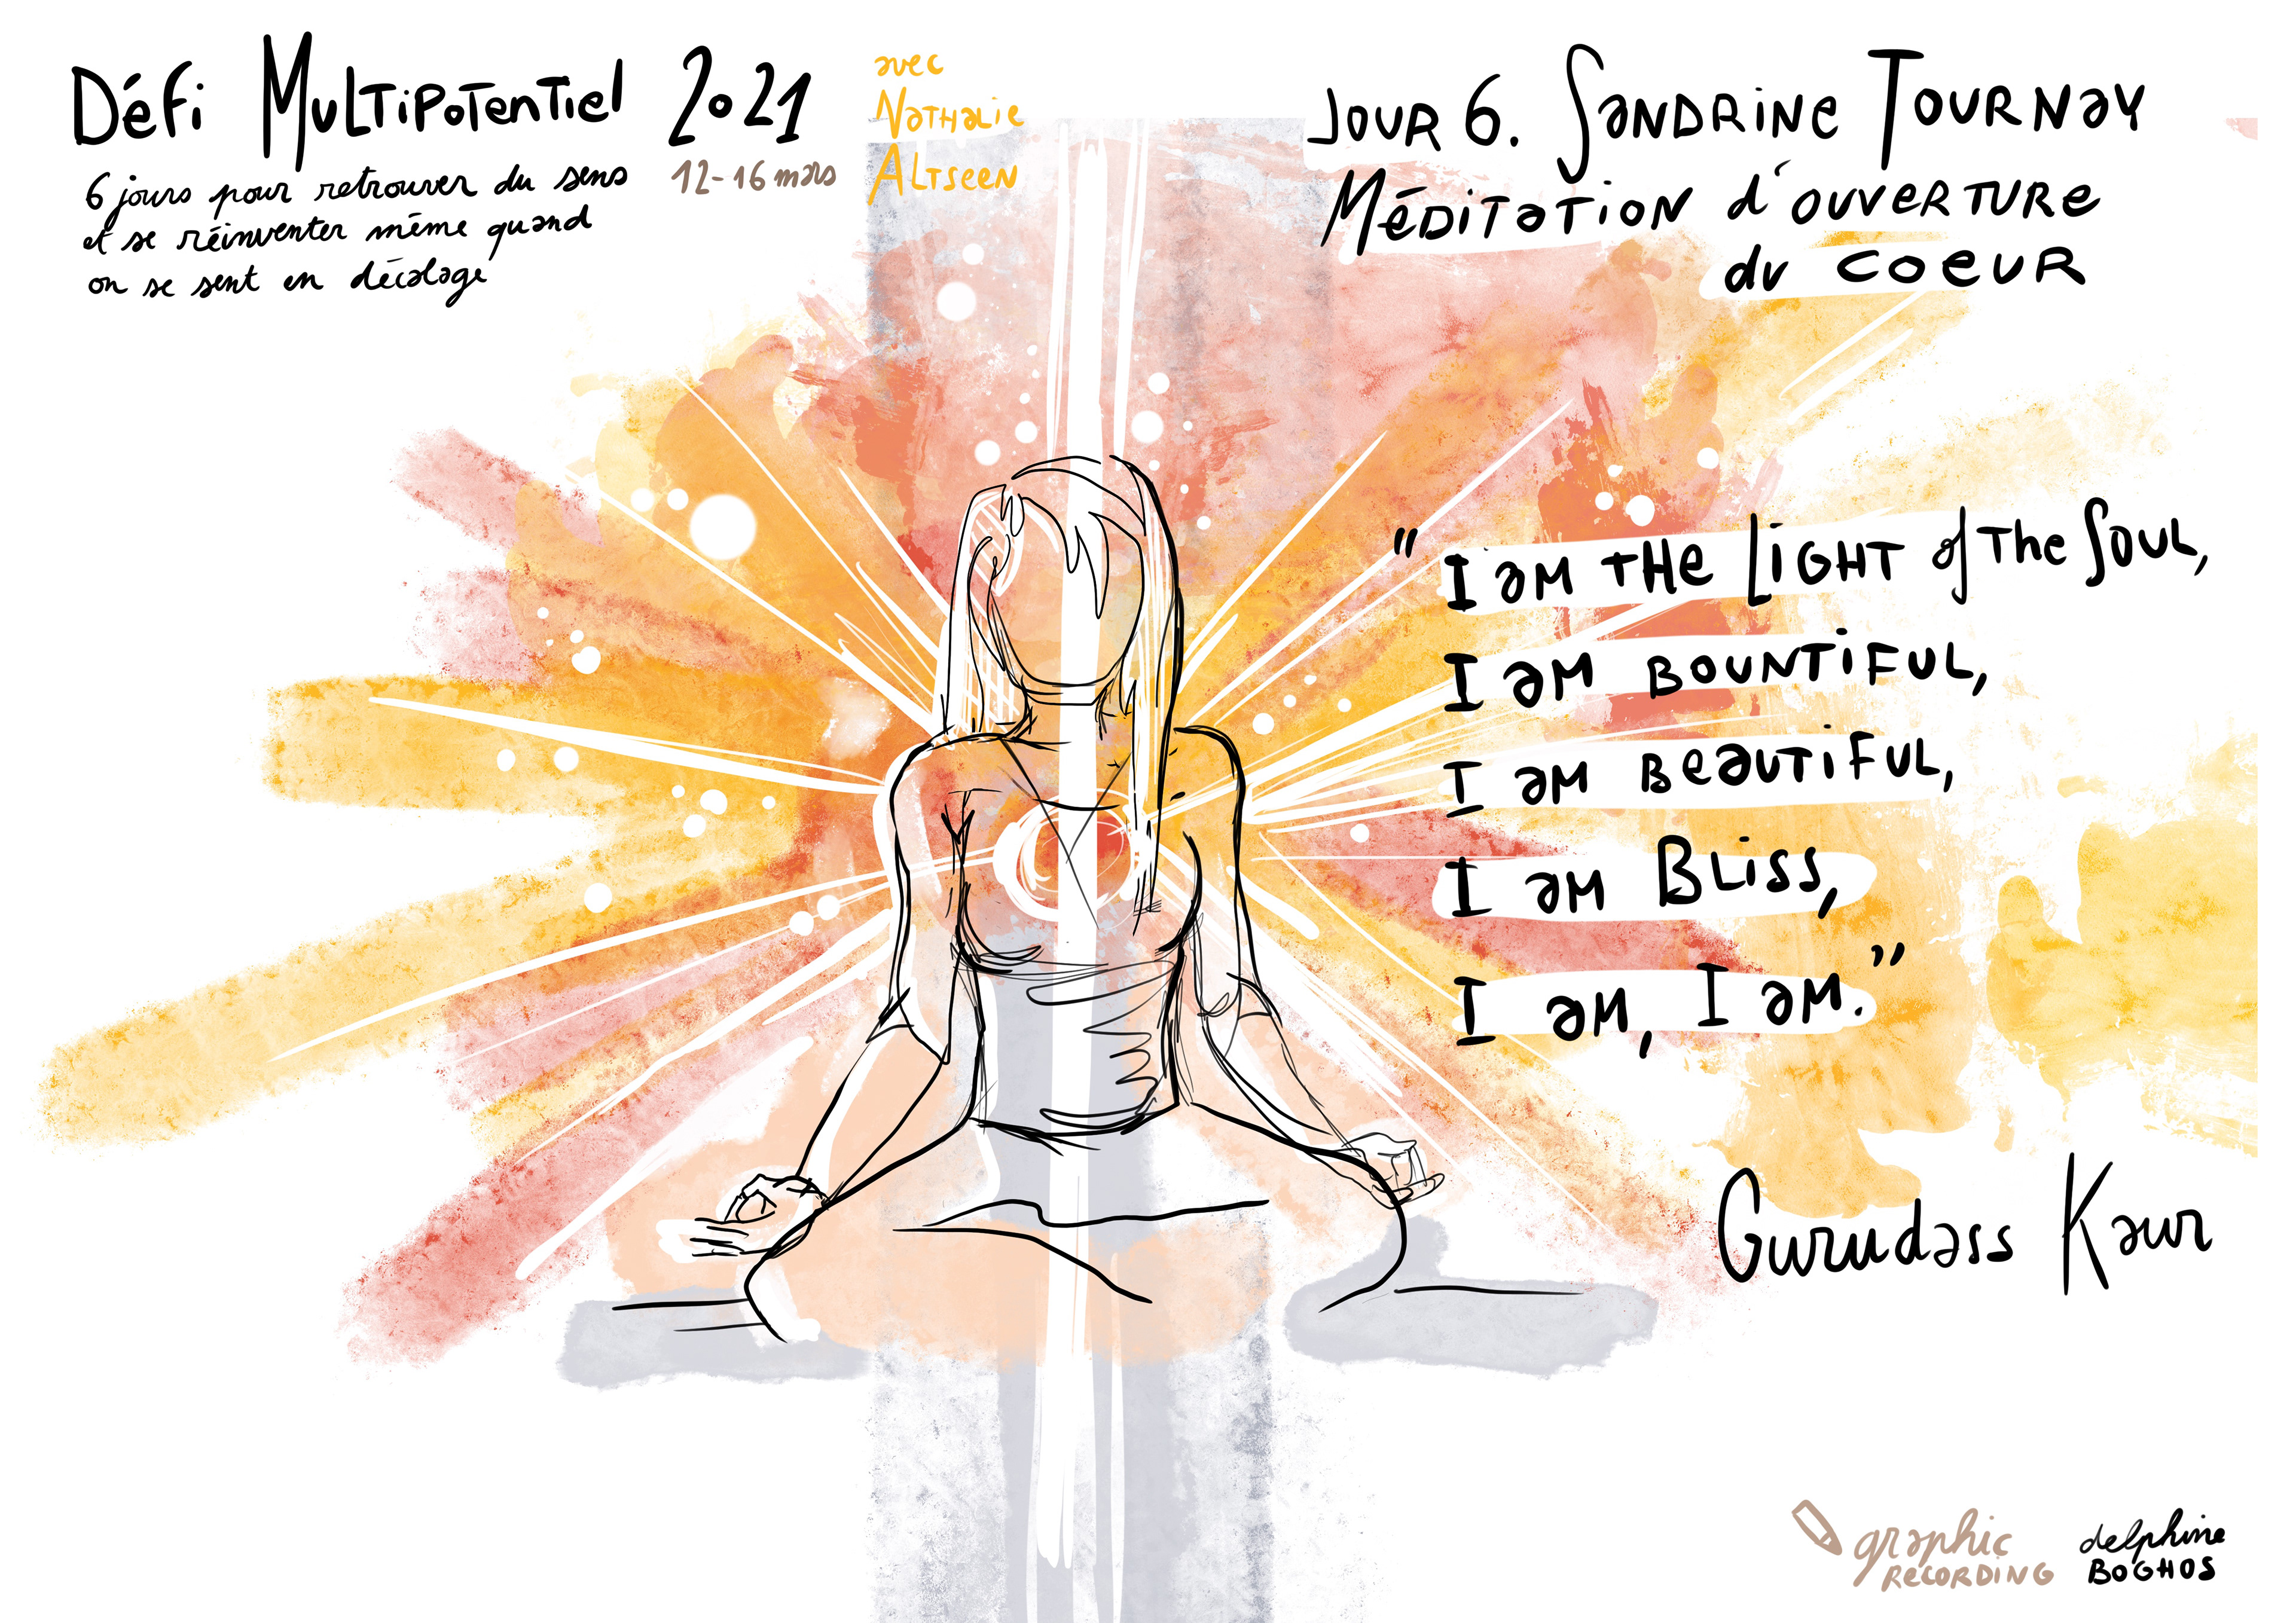 Défi Multipotentiel 2021
6 jours pour retrouver du sens
et se réinventer même quand
on se sent en décalage
12-16 mars
avec
Nathalie
Altseen
Jour 6. Sandrine Tournay
Méditation d'ouverture
du coeur
"I am the Light of the Soul,
I am bountiful,
I am beautiful,
I am Bliss,
I am, I am."
Gurudass Kaur
graphic
recording
delphine
Boghos